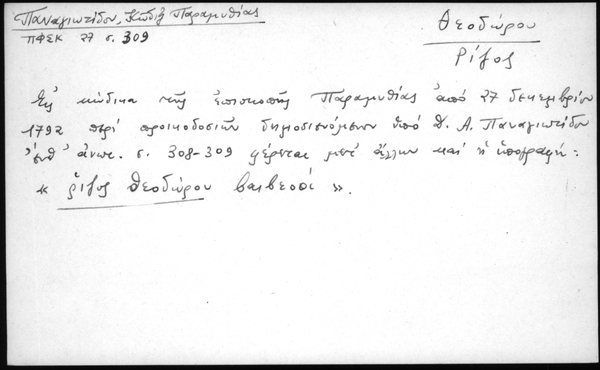 Παναγιωτίδου, Κώδιξ Παραμυθίας
ΠΦΣΚ 27 σ. 309
Θεοδώρου
Ρίζος
Εἰς κώδικα τῆς ἐπισκοπῆς Παραμυθίας ἀπό 27 δεκεμβρίου
1792 περί προικοδοσιῶν δημοσιευόμενον ὑπό Δ. Α. Παναγιωτίδου
ἐνθ' ἀνωτ. σ. 308-309 φέρεται μετ' ἄλλων καί ἡ ὑπογραφή:
« ῥίζος θεοδώρου βαιβεσί ».